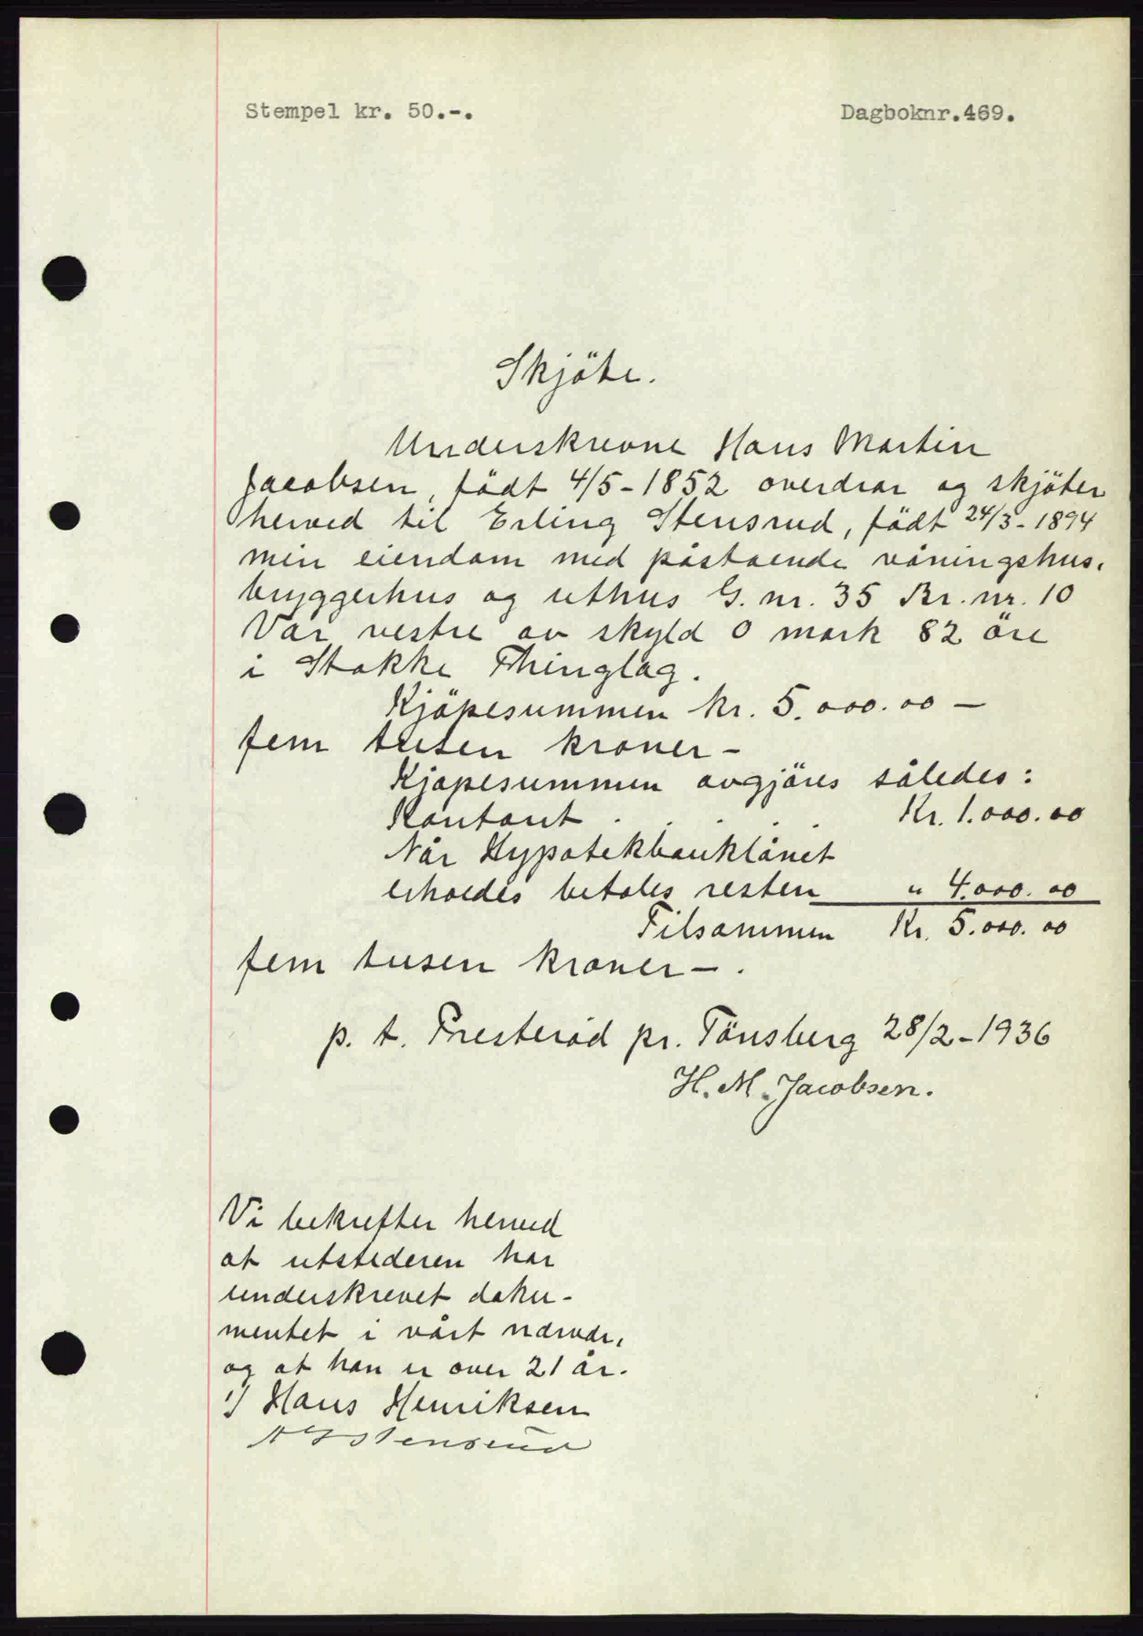 Stempel kr. 50.-.
Dagboknr.469.
Skjöte.
Underskrevne Hans Martin
Jacobsen, född 4/5-1852 overdrar og skjöter
herved til Erling Stensrud, född 24/3-1894
min eiendom med påstaende våningshus,
bryggerhus og uthus G. nr. 35 Br. nr. 10
Var vestre av skyld 0 mark 82 öre
i Stokke Thinglag.
Kjöpesummen kr. 5.000.00 —
fem tusen kroner –
Kjöpesummen avgjöres således:
Kontant . . . . Kr. 1.000.00
Når Hypotekbanklånet
erholdes betales resten " 4.000.00
Tilsammen Kr. 5.000.00
fem tusen kroner – .
p. t. Presterød pr. Tönsberg 28/2-1936
H. M. Jacobsen.
Vi bekrefter herved
at utstederen har
underskrevet doku-
mentet i vårt nærvær,
og at han er over 21 år.
Hans Henriksen
Stensrud